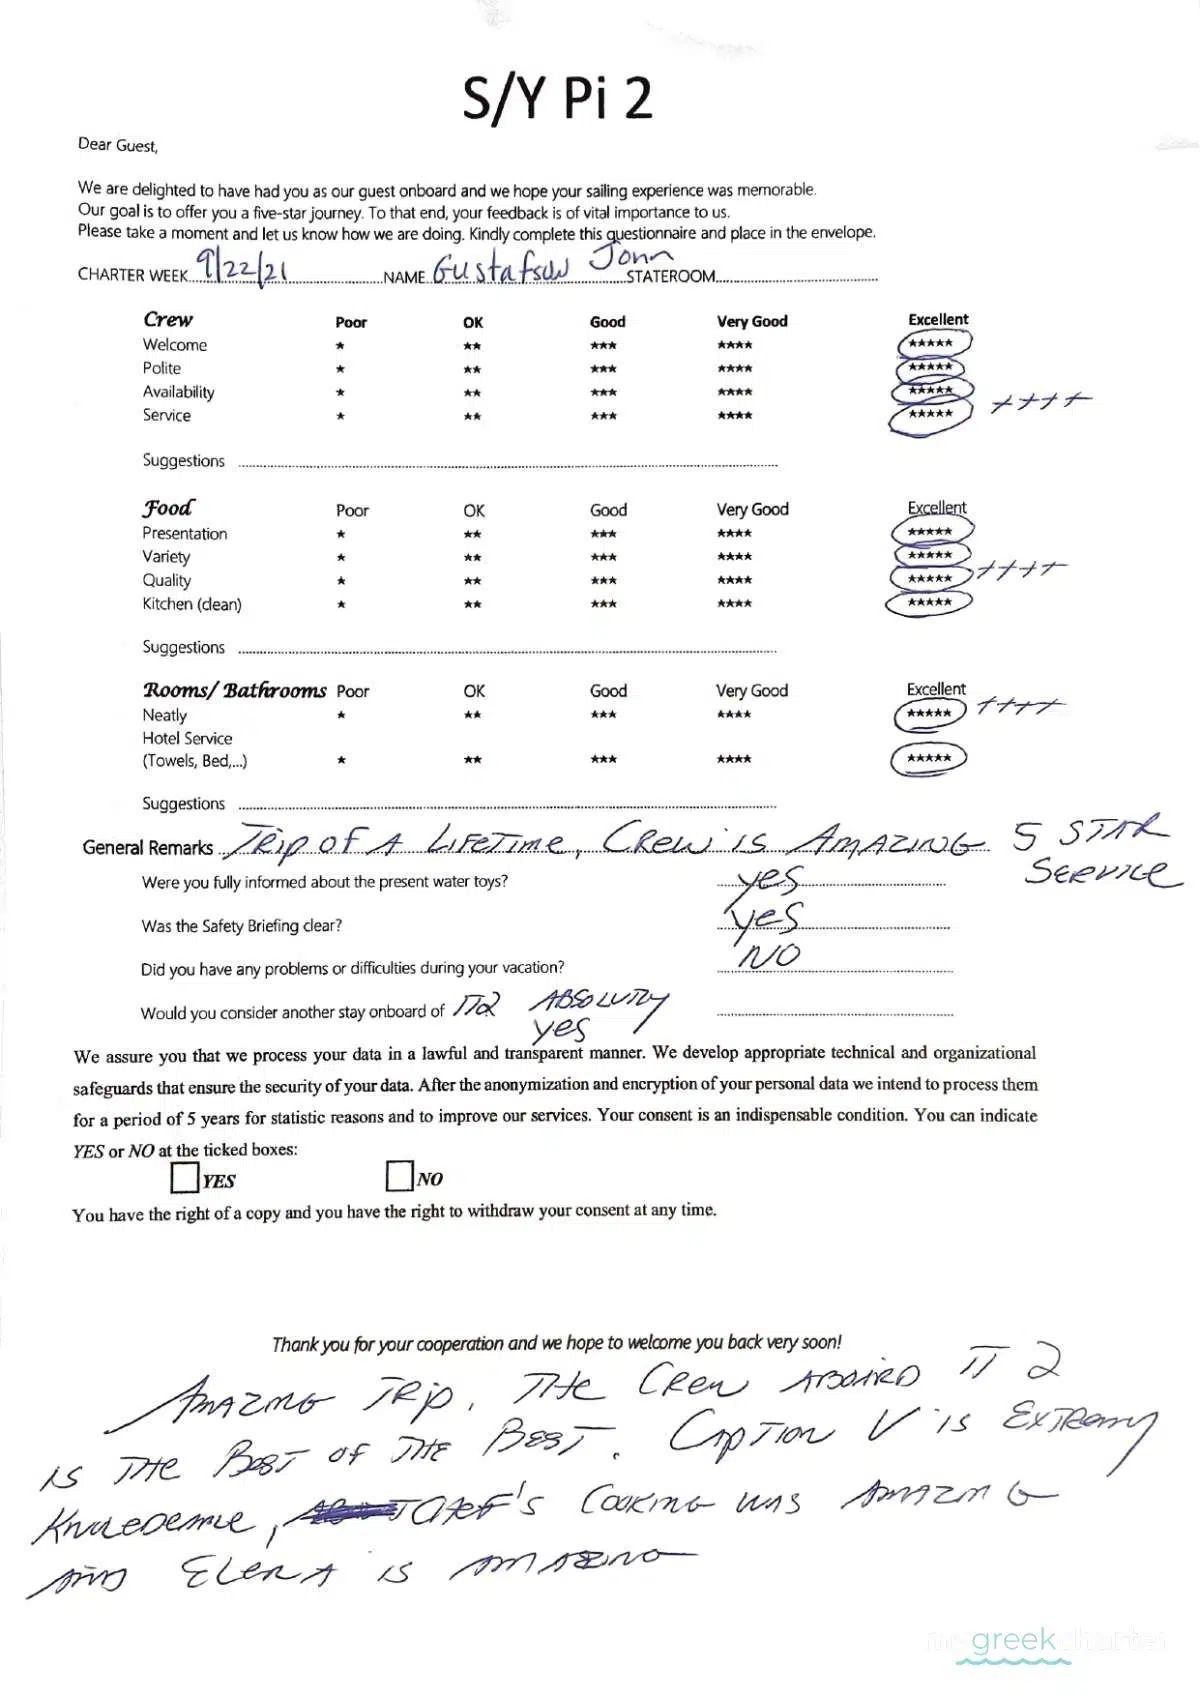 S/Y Pi 2
Dear Guest,
We are delighted to have had you as our guest onboard and we hope your sailing experience was memorable.
Our goal is to offer you a five-star journey. To that end, your feedback is of vital importance to us.
Please take a moment and let us know how we are doing. Kindly complete this questionnaire and place in the envelope.
CHARTER WEEK 9/22/21 NAME Gustafson John STATEROOM
Crew Poor OK Good Very Good Excellent
Welcome ★ ★★ ★★★ ★★★★ ★★★★★
Polite ★ ★★ ★★★ ★★★★ ★★★★★
Availability ★ ★★ ★★★ ★★★★ ★★★★★
Service ★ ★★ ★★★ ★★★★ ★★★★★ ++++
Suggestions
Food Poor OK Good Very Good Excellent
Presentation ★ ★★ ★★★ ★★★★ ★★★★★
Variety ★ ★★ ★★★ ★★★★ ★★★★★
Quality ★ ★★ ★★★ ★★★★ ★★★★★ ++++
Kitchen (clean) ★ ★★ ★★★ ★★★★ ★★★★★
Suggestions
Rooms/ Bathrooms Poor OK Good Very Good Excellent
Neatly ★ ★★ ★★★ ★★★★ ★★★★★ ++++
Hotel Service
(Towels, Bed,...) ★ ★★ ★★★ ★★★★ ★★★★★
Suggestions
General Remarks TRip OF A LIFETIME, CREW is AMAZING 5 STAR
SERVICE
Were you fully informed about the present water toys? yes
Was the Safety Briefing clear? yes
Did you have any problems or difficulties during your vacation? NO
Would you consider another stay onboard of π2 ABSOLUTLY
yes
We assure you that we process your data in a lawful and transparent manner. We develop appropriate technical and organizational
safeguards that ensure the security of your data. After the anonymization and encryption of your personal data we intend to process them
for a period of 5 years for statistic reasons and to improve our services. Your consent is an indispensable condition. You can indicate
YES or NO at the ticked boxes:
YES NO
You have the right of a copy and you have the right to withdraw your consent at any time.
Thank you for your cooperation and we hope to welcome you back very soon!
AMAZING TRIP. THE CREW ABOARD π 2
IS THE BEST OF THE BEST. CAPTION V is
CHEF'S COOKING WAS AMAZING
AND ELENA is AMAZING
my greek charter